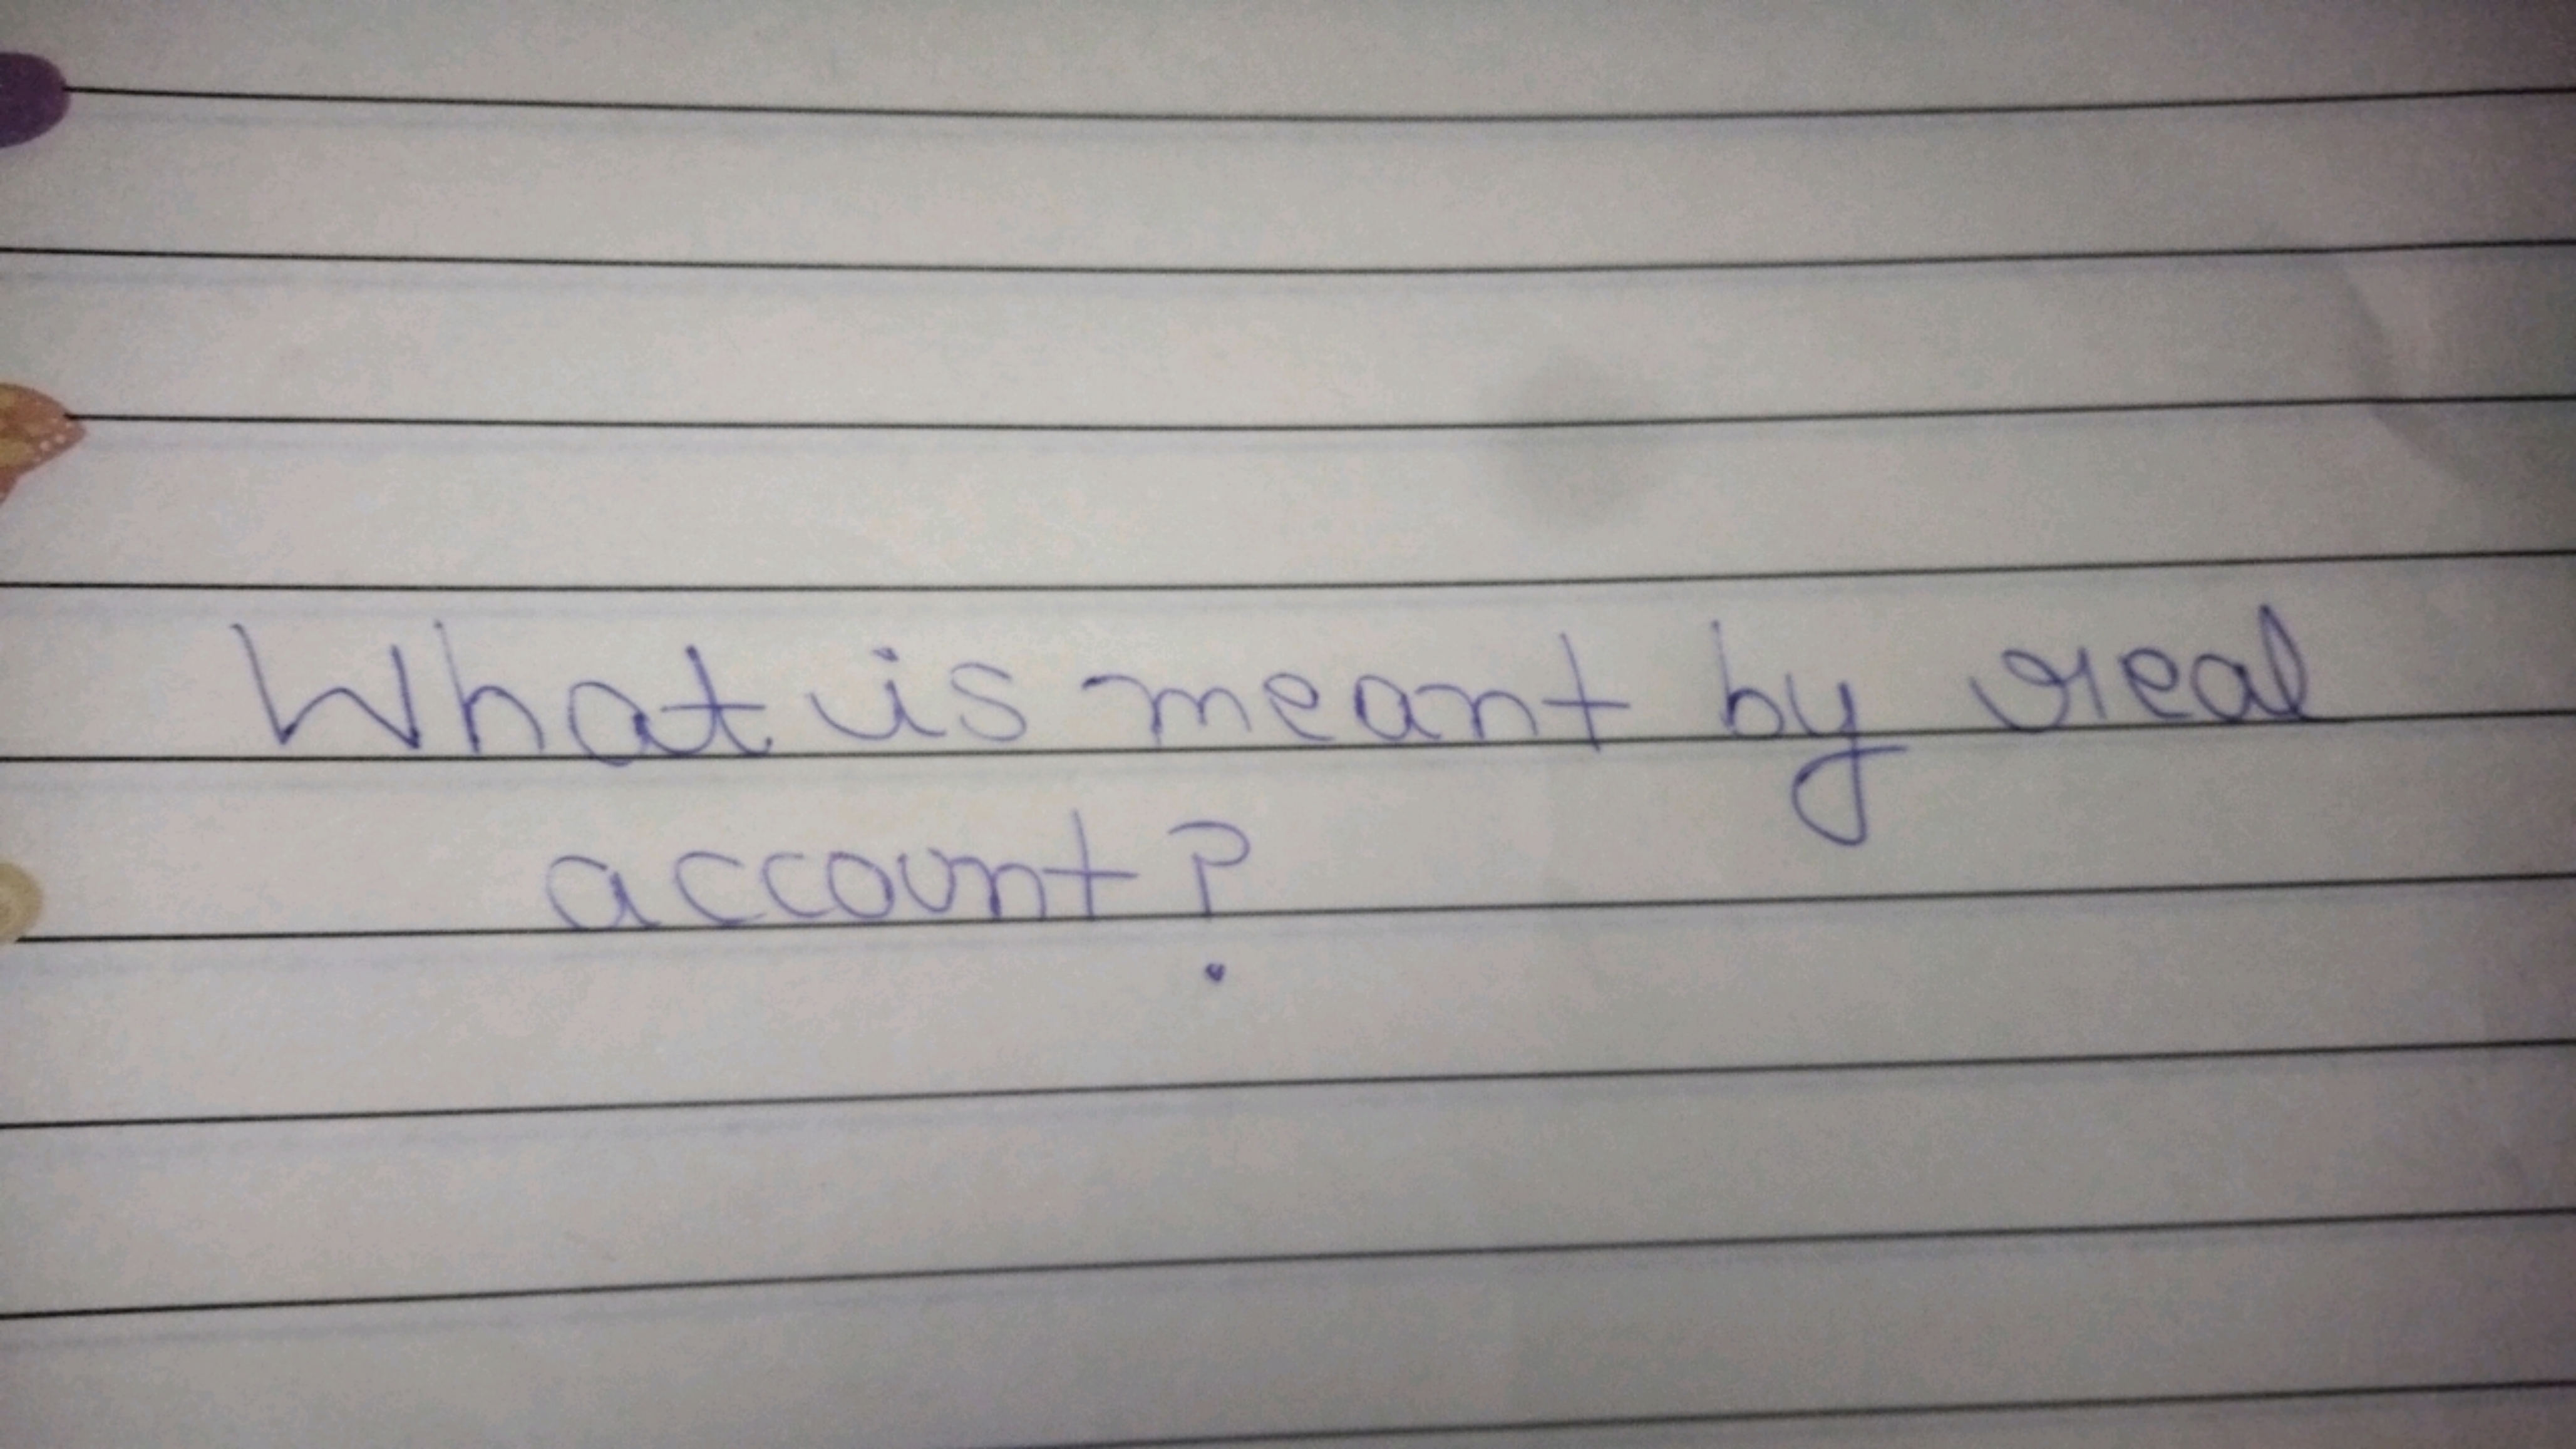 What is meant by real
account?